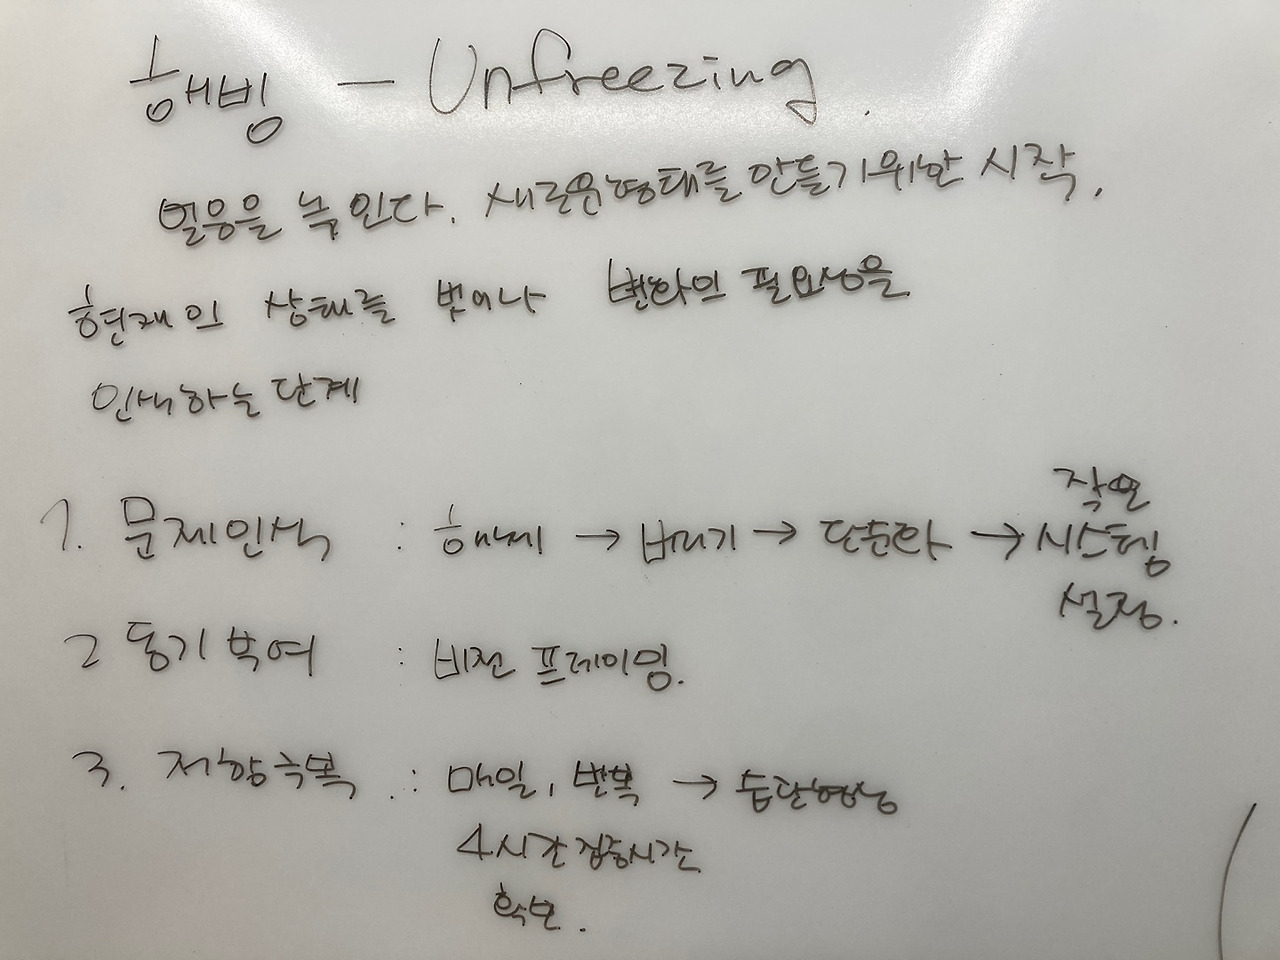 해빙 — Unfreezing.
얼음을 녹인다. 새로운형태를 만들기위한 시작.
현재의 상태를 벗어나 변화의 필요성을
인식하는 단계
1. 문제인식 : 해체 → 버리기 → 단순화 → 작은
시스템
설정.
2 동기부여 : 비전 프레이밍.
3. 저항극복 : 매일, 반복 → 습관형성
4시간 집중시간
확보.